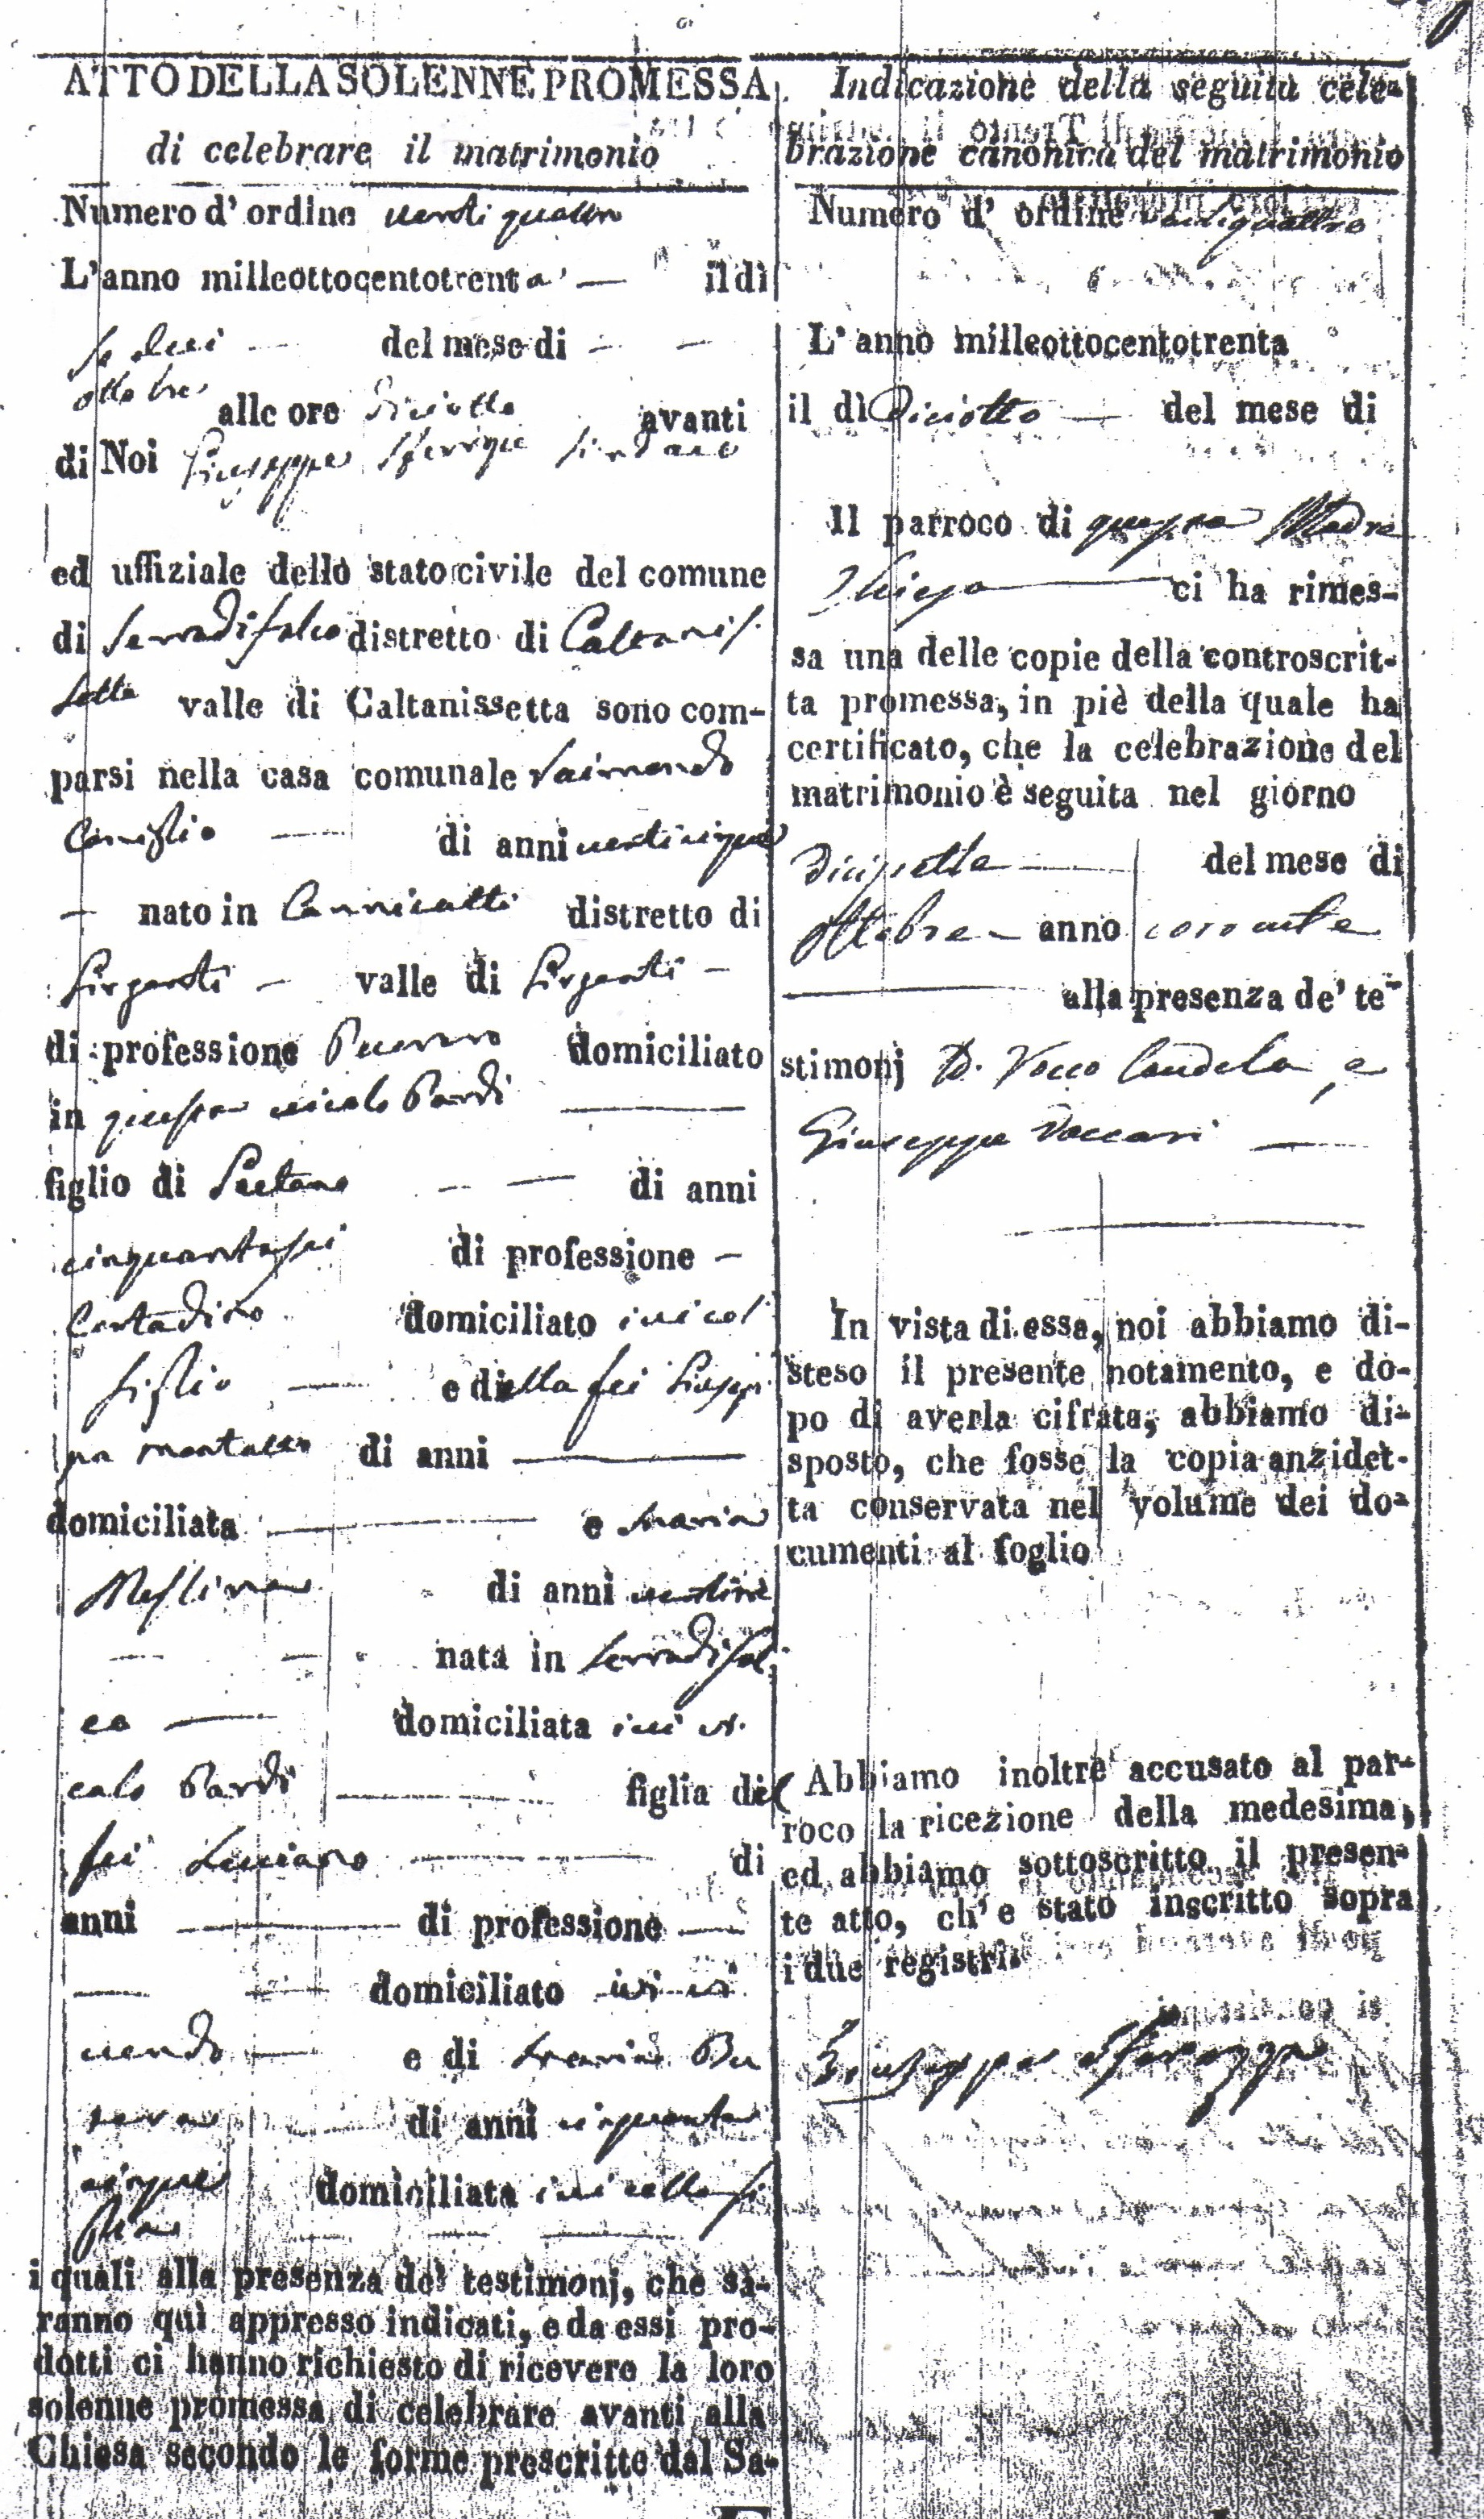 ATTO DELLA SOLENNE PROMESSA
di celebrare il matrimonio
Numero d' ordine venti quattro
L'anno milleottocentotrenta — il dì
sedeci — del mese di — —
ottobre alle ore diciotto avanti
di Noi Giuseppe Sindaco
ed uffiziale dello stato civile del comune
di Serradifalco distretto di Caltanis
setta valle di Caltanissetta sono com-
parsi nella casa comunale Raimondo
Coniglio — di anni venticinque
— nato in Cannicatti distretto di
Girgenti — valle di Girgenti —
di professione domiciliato
in questa vicolo Pardi
figlio di Gaetano — — di anni
cinquantasei di professione —
Contadino domiciliato ivi col
figlio — e della fu Giusep
pa Montalto di anni —
domiciliata — e Maria
Messina di anni
— — nata in Serradifal
co — domiciliata ivi vi
colo Pardi — figlia del
fu Luciano — di
anni — di professione —
— — domiciliato ivi vi
vendo — e di Maria Bu
di anni cinquanta
cinque domiciliata ivi colla fi
glia
i quali alla presenza de' testimonj, che sa-
ranno quì appresso indicati, e da essi pro-
dotti ci hanno richiesto di ricevere la loro
solenne promessa di celebrare avanti alla
Chiesa secondo le forme prescritte dal Sa-
Indicazione della seguita cele-
brazione canonica del matrimonio
Numero d' ordine ventiquattro
L' anno milleottocentotrenta
il dì Diciotto — del mese di
Il parroco di questa Madre
Chiesa — ci ha rimes-
sa una delle copie della controscrit-
ta promessa, in piè della quale ha
certificato, che la celebrazione del
matrimonio è seguita nel giorno
dicisette — del mese di
Ottobre — anno corrente
— alla presenza de' te-
stimonj D. Rocco Candela, e
Giuseppe Vaccari —
In vista di essa, noi abbiamo di-
steso il presente notamento, e do-
po di averla cifrata, abbiamo di-
sposto, che fosse la copia anzidet-
ta conservata nel volume dei do-
cumenti al foglio
Abbiamo inoltre accusato al par-
roco la ricezione della medesima,
ed abbiamo sottoscritto il presen-
te atto, ch' e stato inscritto sopra
i due registri.
Giuseppe